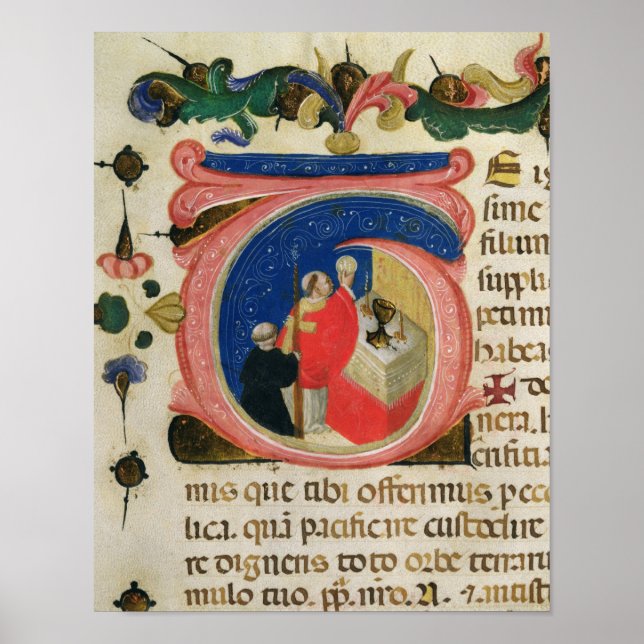 T E ig
sime
filium
suppli
petimu
habea
✠ do
nera. h
crificia
mis que tibi offerimus p ecc
lica. quā pacificare custodire
re digneris toto orbe terraru
mulo tuo. pp̄. nr̄o. N. ⁊ antist